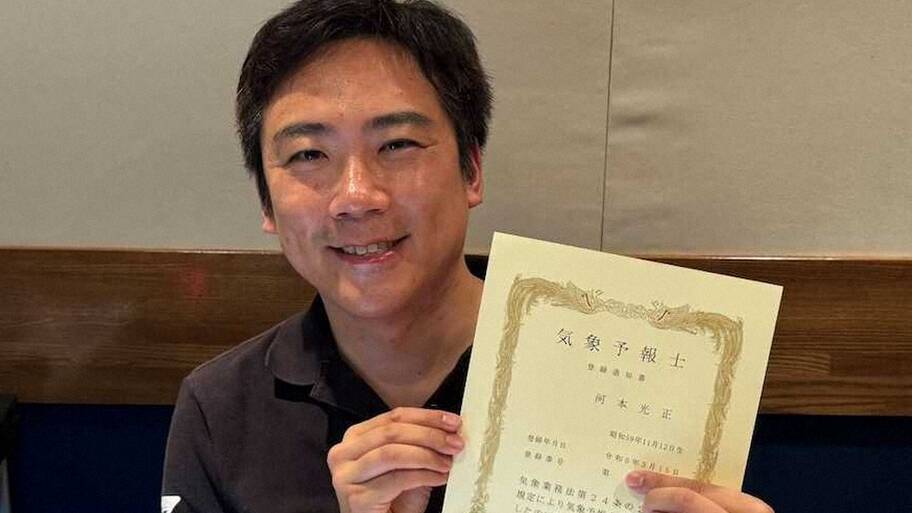 気象予報士
登録通知書
河本光正
昭和59年11月12日生
登録年月日 令和6年3月15日
登録番号 第
気象業務法第24条の
規定により気象予
した